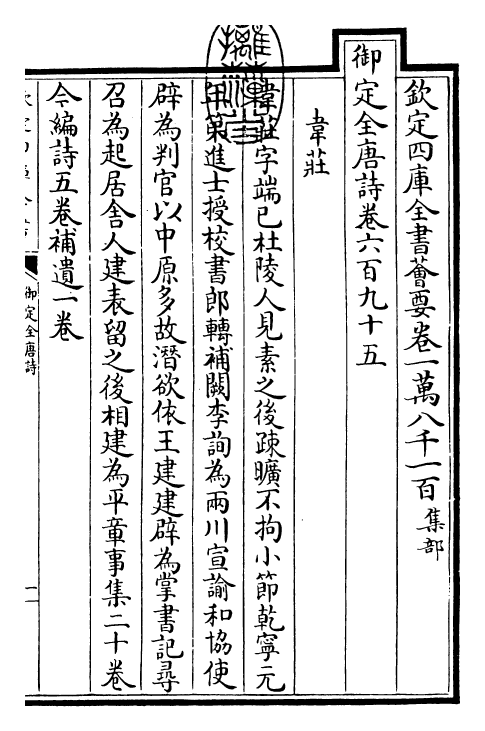 欽定四庫全書薈要卷一萬八千一百 集部
御定全唐詩卷六百九十五
韋莊
韋莊字端已杜陵人見素之後疎曠不拘小節乾寧元
年第進士授校書郎轉補闕李詢為兩川宣諭和協使
辟為判官以中原多故潛欲依王建建辟為掌書記尋
召為起居舍人建表留之後相建為平章事集二十卷
今編詩五卷補遺一卷
御定全唐詩
一